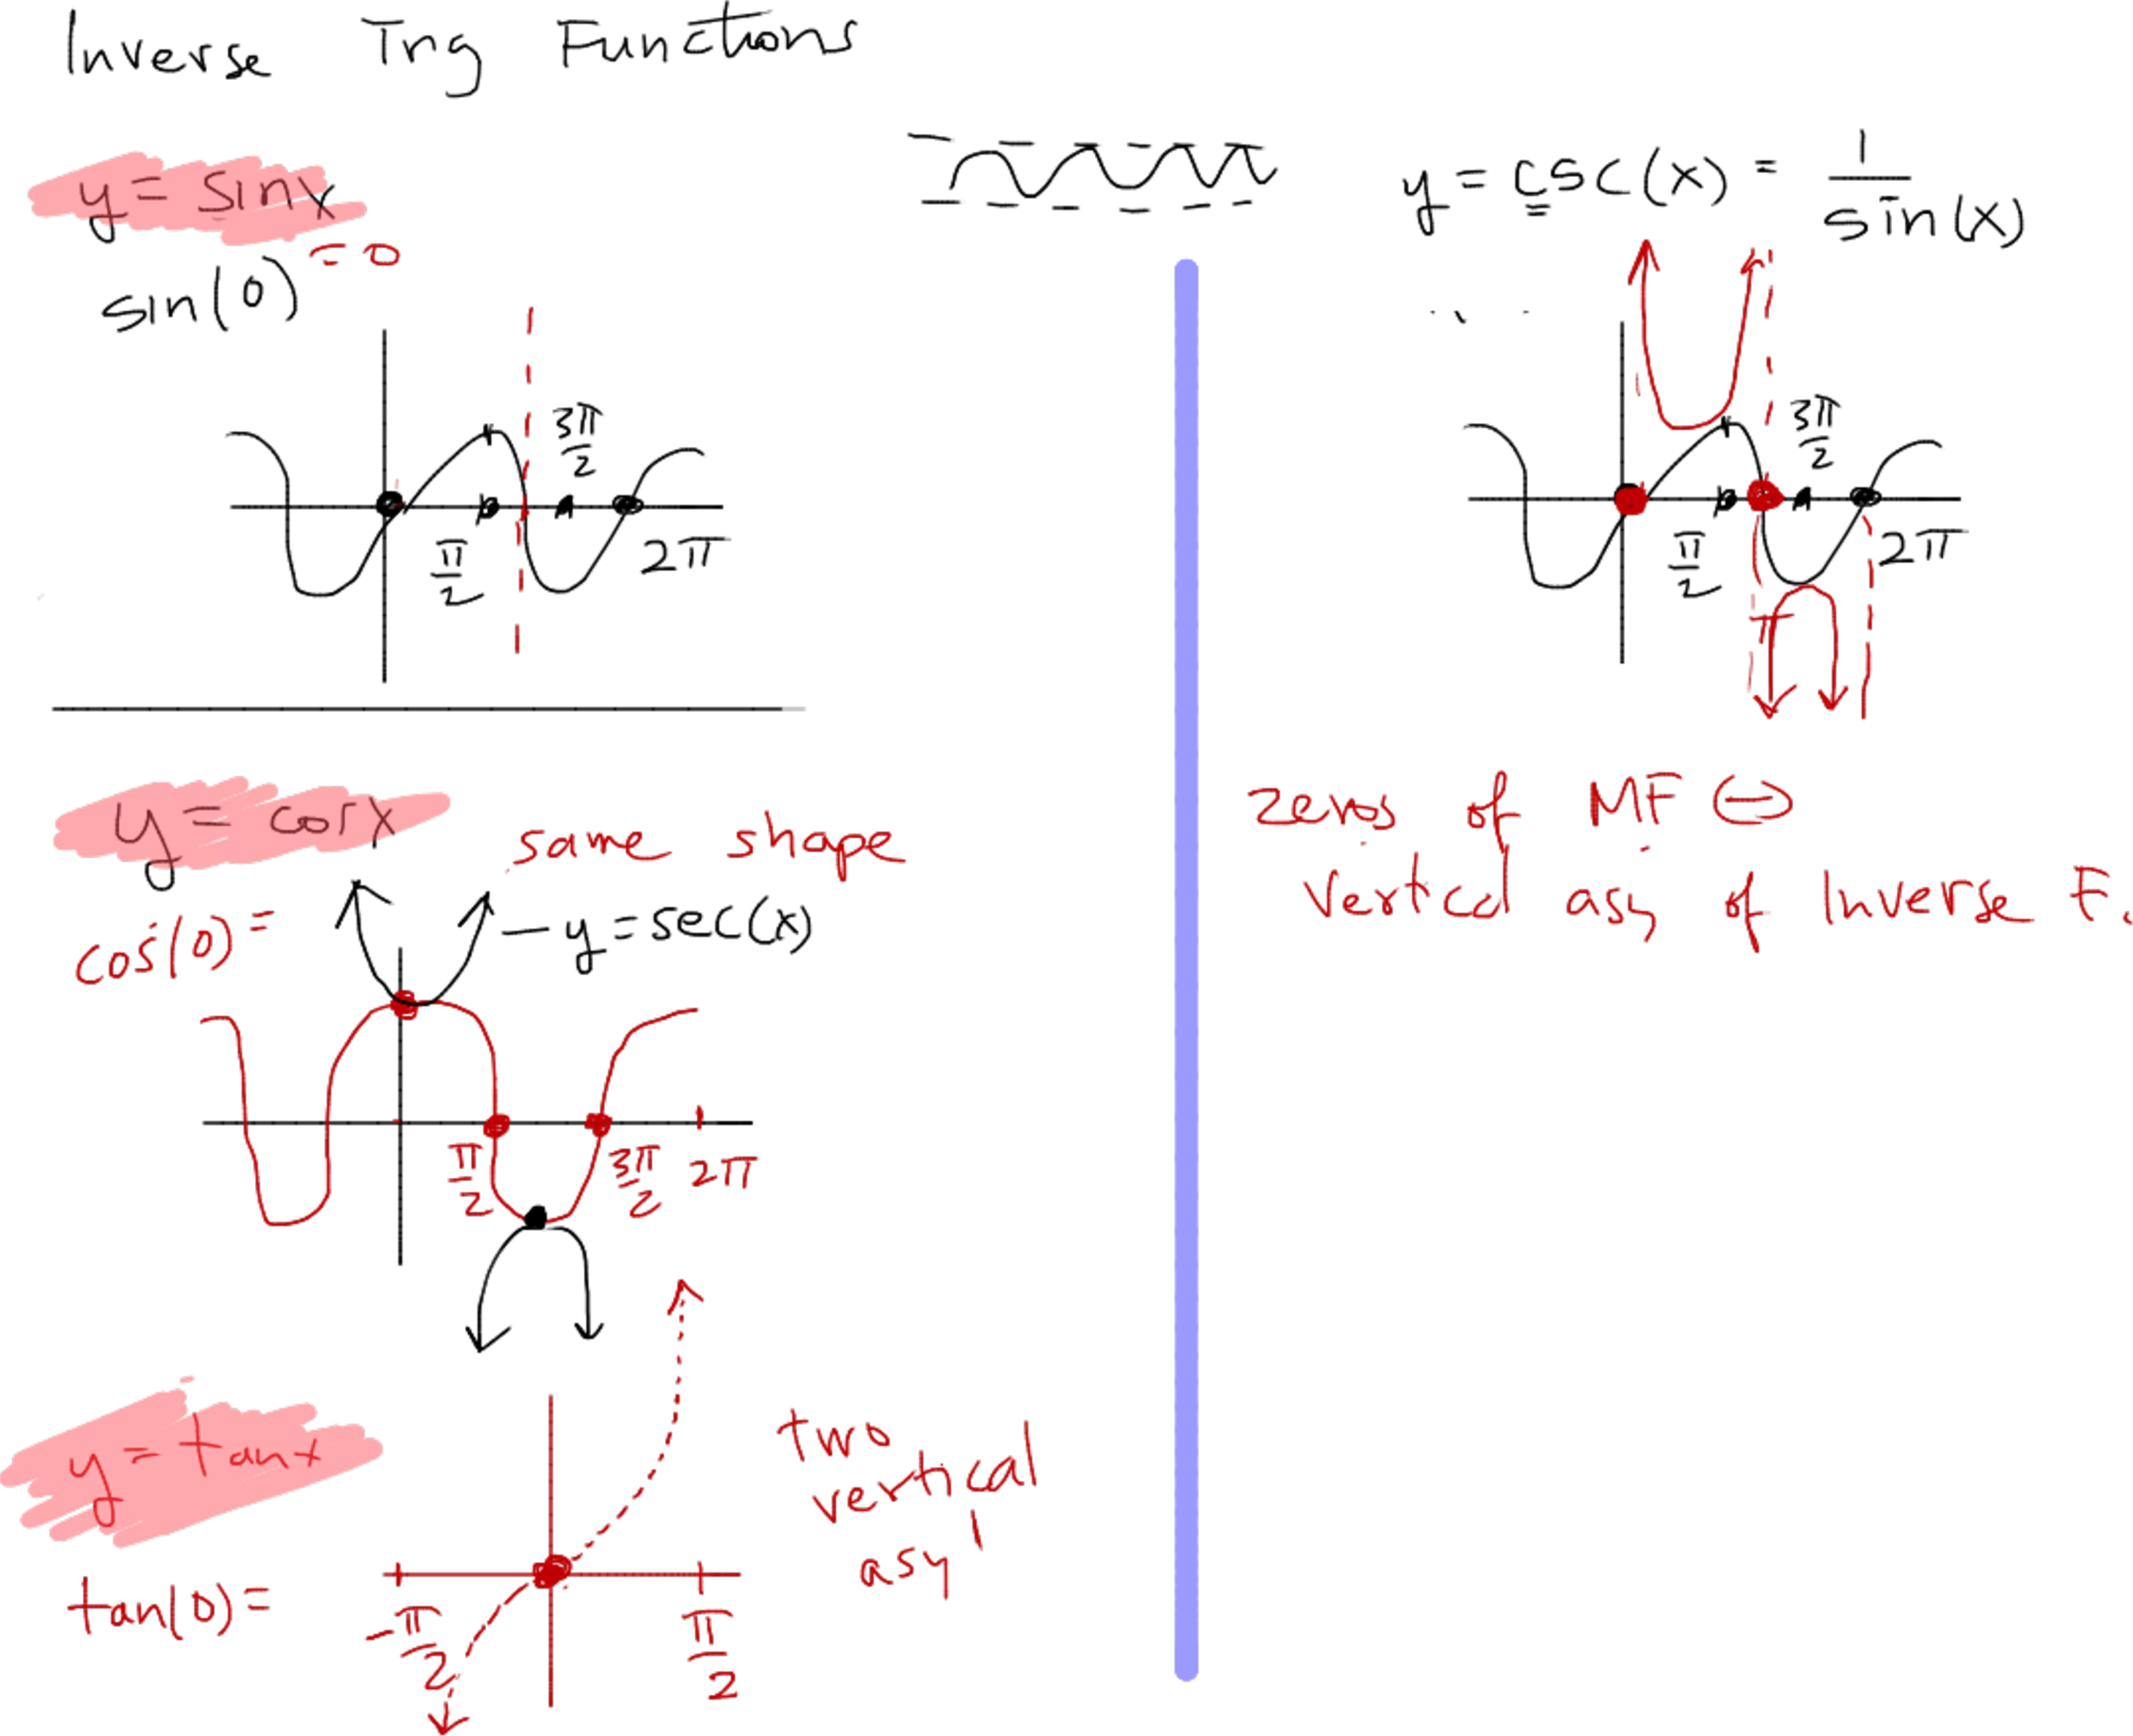 Inverse Trig Functions
y = sinx
sin(0) = 0
3π/2
π/2
2π
y = cosx
same shape
cos(0) =
y = sec(x)
π/2
3π/2
2π
y = tanx
two
vertical
asy
tan(0) =
-π/2
π/2
y = csc(x) = 1/sin(x)
3π/2
π/2
2π
π
zeros of MF ↔
Vertical asy of Inverse F.